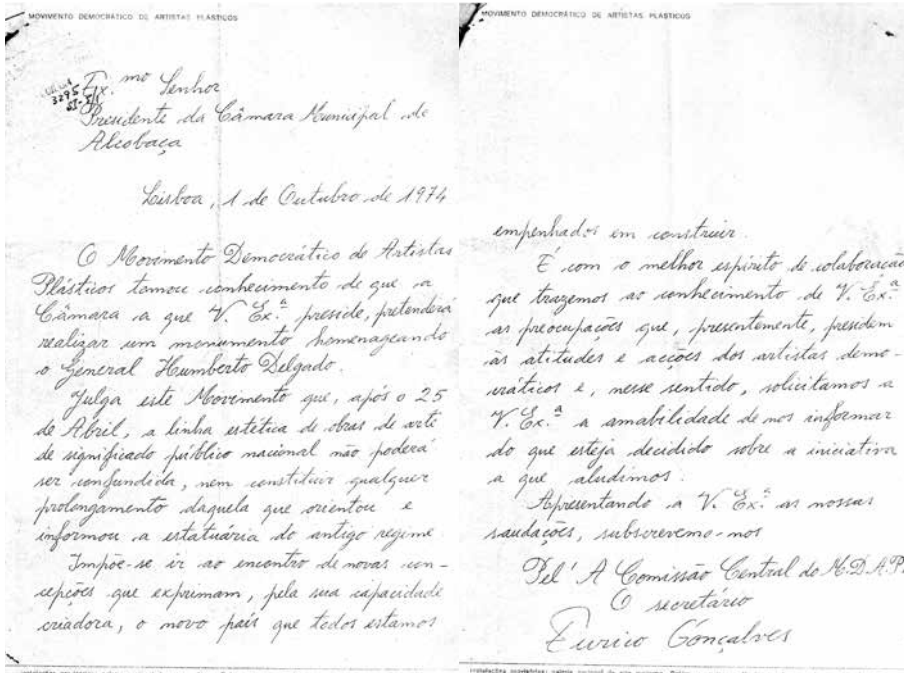 MOVIMENTO DEMOCRÁTICO DE ARTISTAS PLÁSTICOS
3295
Ex.mo Senhor
Presidente da Câmara Municipal de
Alcobaça
Lisboa, 1 de Outubro de 1974
O Movimento Democrático de Artistas
Plásticos tomou conhecimento de que a
Câmara a que V. Ex.ª preside, pretenderá
realizar um monumento homenageando
o General Humberto Delgado.
Julga este Movimento que, após o 25
de Abril, a linha estética de obras de arte
de significado público nacional não poderá
ser confundida, nem constituir qualquer
prolongamento daquela que orientou e
informou a estatuária do antigo regime.
Impõe-se ir ao encontro de novas con-
cepções que exprimam, pela sua capacidade
criadora, o novo país que todos estamos
MOVIMENTO DEMOCRÁTICO DE ARTISTAS PLÁSTICOS
empenhados em construir.
É com o melhor espírito de colaboração
que trazemos ao conhecimento de V. Ex.ª
as preocupações que, presentemente, presidem
às atitudes e acções dos artistas demo-
cráticos e, nesse sentido, solicitamos a
V. Ex.ª a amabilidade de nos informar
do que esteja decidido sobre a iniciativa
a que aludimos.
Apresentando a V. Ex.ª as nossas
saudações, subscrevemo-nos
Pel' A Comissão Central do M.D.A.P.
O secretário
Eurico Gonçalves